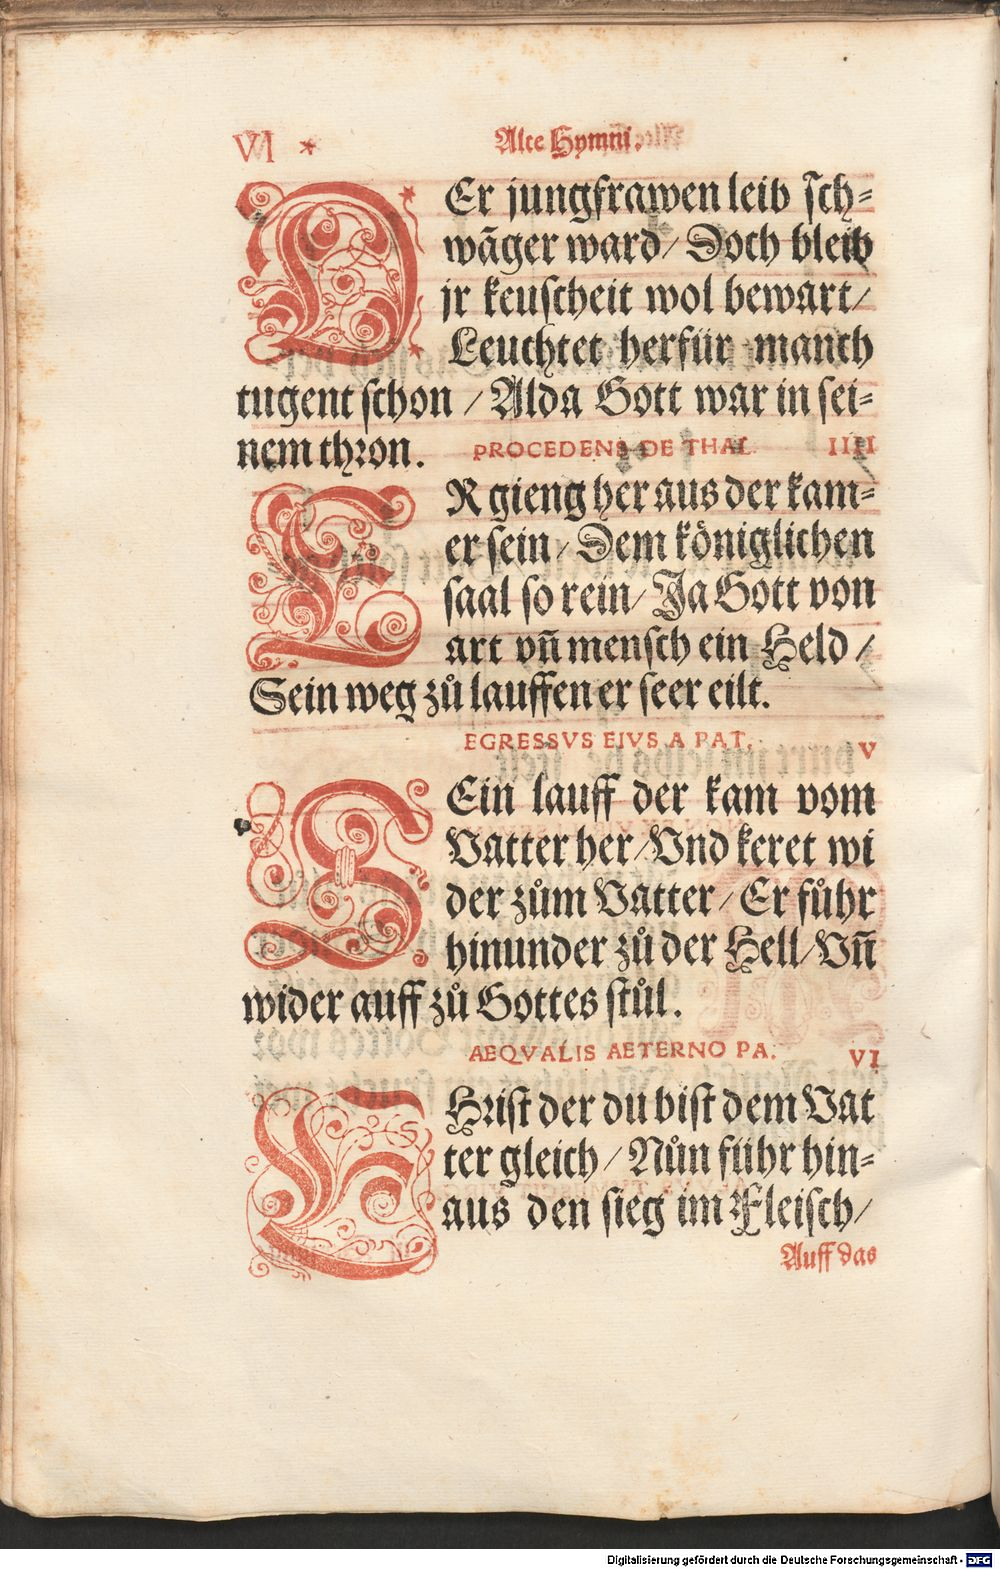 VI *
Alte Hymni.
DEr jungfrawen leib sch=
wãger ward/ Doch bleib
jr keuscheit wol bewart/
Leuchtet herfür manch
tugent schon / Alda Gott war in sei=
nem thron. PROCEDENS DE THAL. IIII
ER gieng her aus der kam=
er sein/ Dem königlichen
saal so rein/ Ja Gott von
art vñ mensch ein Held /
Sein weg zů lauffen er seer eilt.
EGRESSVS EIVS A PAT. V
SEin lauff der kam vom
Vatter her/ Vnd keret wi
der zům Vatter/ Er fůhr
hinunder zů der Hell/ Vñ
wider auff zů Gottes stůl.
AEQVALIS AETERNO PA. VI
CHrist der du bist dem Vat
ter gleich / Nůn führ hin=
aus den sieg im Fleisch/
Auff das
Digitalisierung gefördert durch die Deutsche Forschungsgemeinschaft - DFG